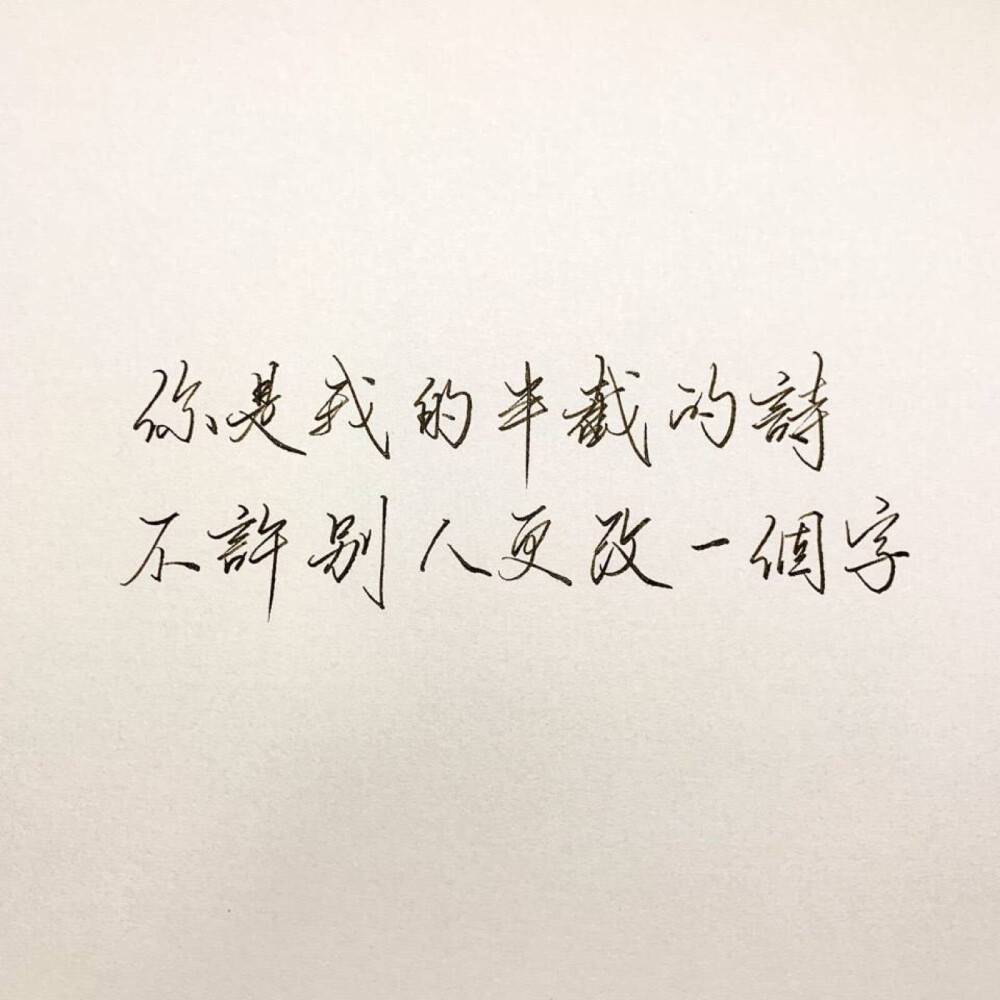 你是我的半截的詩
不許別人更改一個字